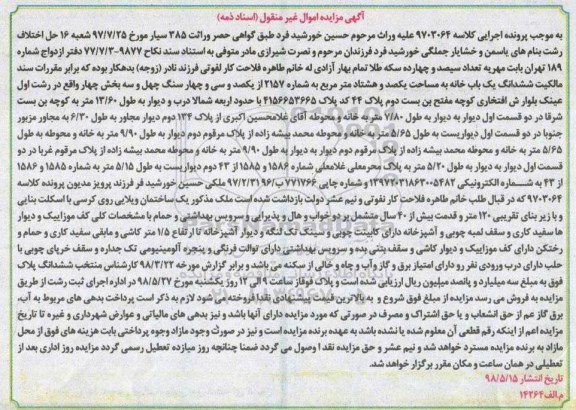 آگهی مزایده اموال غیر منقول (اسناد ذمه)
به موجب پرونده اجرایی کلاسه ۹۷۰۳۰۶۴ علیه وراث مرحوم حسین خورشید فرد طبق گواهی حصر وراثت ۳۸۵ سیار مورخ ۹۷/۷/۲۵ شعبه ۱۶ حل اختلاف
رشت بنام های یاسمن و خشایار جملگی خورشید فرد فرزندان مرحوم و نصرت شیرازی مادر متوفی به استناد سند نکاح ۹۸۷۷-۷۷/۷/۳ دفتر ازدواج شماره
۱۸۹ تهران بابت مهریه تعداد سیصد و چهارده سکه طلا تمام بهار آزادی له خانم طاهره فلاحت کار لفوتی فرزند نادر (زوجه) بدهکار بوده که برابر مقررات سند
مالکیت ششدانگ یک باب خانه به مساحت یکصد و هشتاد متر مربع به شماره ۲۱۵۷ از یکصد و سی و چهار سنگ چهل و سه بخش چهار واقع در رشت این
عینک بلوار ش افتخاری کوچه مفتح بن بست دوم پلاک ۴۴ کد پلاک ۴۱۵۶۶۵۳۶۶۵ با حدود اربعه شمالا درب و دیوار به طول ۱۳/۶۰ متر به کوچه بن بست
شرقا در دو قسمت اول دیوار به دیوار به طول ۷/۸۰ متر به خانه و محوطه آقای غلامحسین اکبری از پلاک ۱۳۴ دوم دیوار مجاور به طول ۶/۳۰ به مجاور مزبور
جنوبا در دو قسمت اول دیواریست به طول ۵/۶۵ متر به خانه و محوطه محمد بیشه زاده از پلاک مرقوم دوم دیوار به دیوار به طول ۹/۹۰ متر به خانه و محوطه به طول
۵/۶۵ متر به خانه و محوطه محمد بیشه زاده از پلاک مرقوم دوم دیوار به دیوار به طول ۹/۹۰ متر به خانه و محوطه محمد بیشه زاده از پلاک مرقوم غربا در دو
قسمت اول دیوار به دیوار به طول ۵/۲۰ متر به پلاک محرمعلی غلامعلی شماره ۱۵۸۶ و ۱۵۸۵ از ۴۳ دوم دیواریست به طول ۵/۱۵ متر به شماره ۱۵۸۵ و ۱۵۸۶
از ۴۳ به شماره الکترونیکی ۱۳۹۷۲۰۳۱۸۶۳۰۰۵۴۸۲ و شماره چاپی ۷۷۱۷۶۶ب/۹۷/۲/۳۱۹۶ ملکی حسین خورشید فر فرزند پرویز مدیون پرونده کلاسه
۹۷۰۳۰۶۴ که در قبال طلب خانم طاهره فلاحت کار لفوتی و نیم عشر دولت بازداشت شده است ملک مذکور یک ساختمان ویلایی روی کرسی با اسکلت بنایی
و با زیر بنای تقریبی ۱۲۰ متر و قدمت بیش از ۴۰ سال مشتمل بر دو خواب و هال و پذیرایی و سرویس بهداشتی و حمام با مشخصات کلی کف موزاییک و دیوار
ها سفید کاری و سقف لمبه چوبی و آشپزخانه دارای کابینت چوبی و سینک تک لنگه و دیوار آشپزخانه تا ارتفاع ۱/۵ متر کاشی و مابقی سفید کاری و حمام و
رختکن دارای کف موزاییک و دیوار کاشی و سقف پتنی بده و سرویس بهداشتی دارای توالت فرنگی و پنجره آلومینیومی تک جداره و سقف خرپای چوبی با
حلب دارای درب ورودی نفر رو دارای امتیاز برق و گاز وآب و چاه و خالی از سکنه می باشد و برابر گزارش مورخه ۹۸/۳/۲۲ کارشناس منتخب ششدانگ پلاک
فوق به مبلغ سه میلیارد و پانصد میلیون ریال ارزیابی شده است و پلاک فوقاز ساعت ۹ الی ۱۲ روز یکشنبه مورخ ۹۸/۵/۲۷ در اداره اجرای ثبت رشت از طریق
مزایده به فروش می رسد مزایده از مبلغ فوق شروع و به بالاترین قیمت پیشنهادی نقدا فروخته می شود لازم به ذکر است پرداخت بدهی های مربوط به آب،
برق گاز عم از حق انشعاب و یا حق اشتراک و مصرف در صورتی که مورد مزایده دارای آنها باشد و نیز بدهی های مالیاتی و عوارض شهرداری و غیره تا تاریخ
مزایده اعم از اینکه رقم قطعی آن معلوم شده یا نشده باشد به عهده برنده مزایده است و نیز در صورت وجود مازاد وجوه پرداختی بابت هزینه های فوق از محل
مازاد به برنده مزایده مسترد خواهد شد و نیم عشر و حق مزایده نقد ا وصول می گردد ضمنا چنانچه روز میازده تعطیل رسمی گردد مزایده روز اداری بعد از
تعطیلی در همان ساعت و مکان مقرر برگزار خواهد شد.
تاریخ انتشار ۹۸/۵/۱۵
م الف۱۴۲۶۴